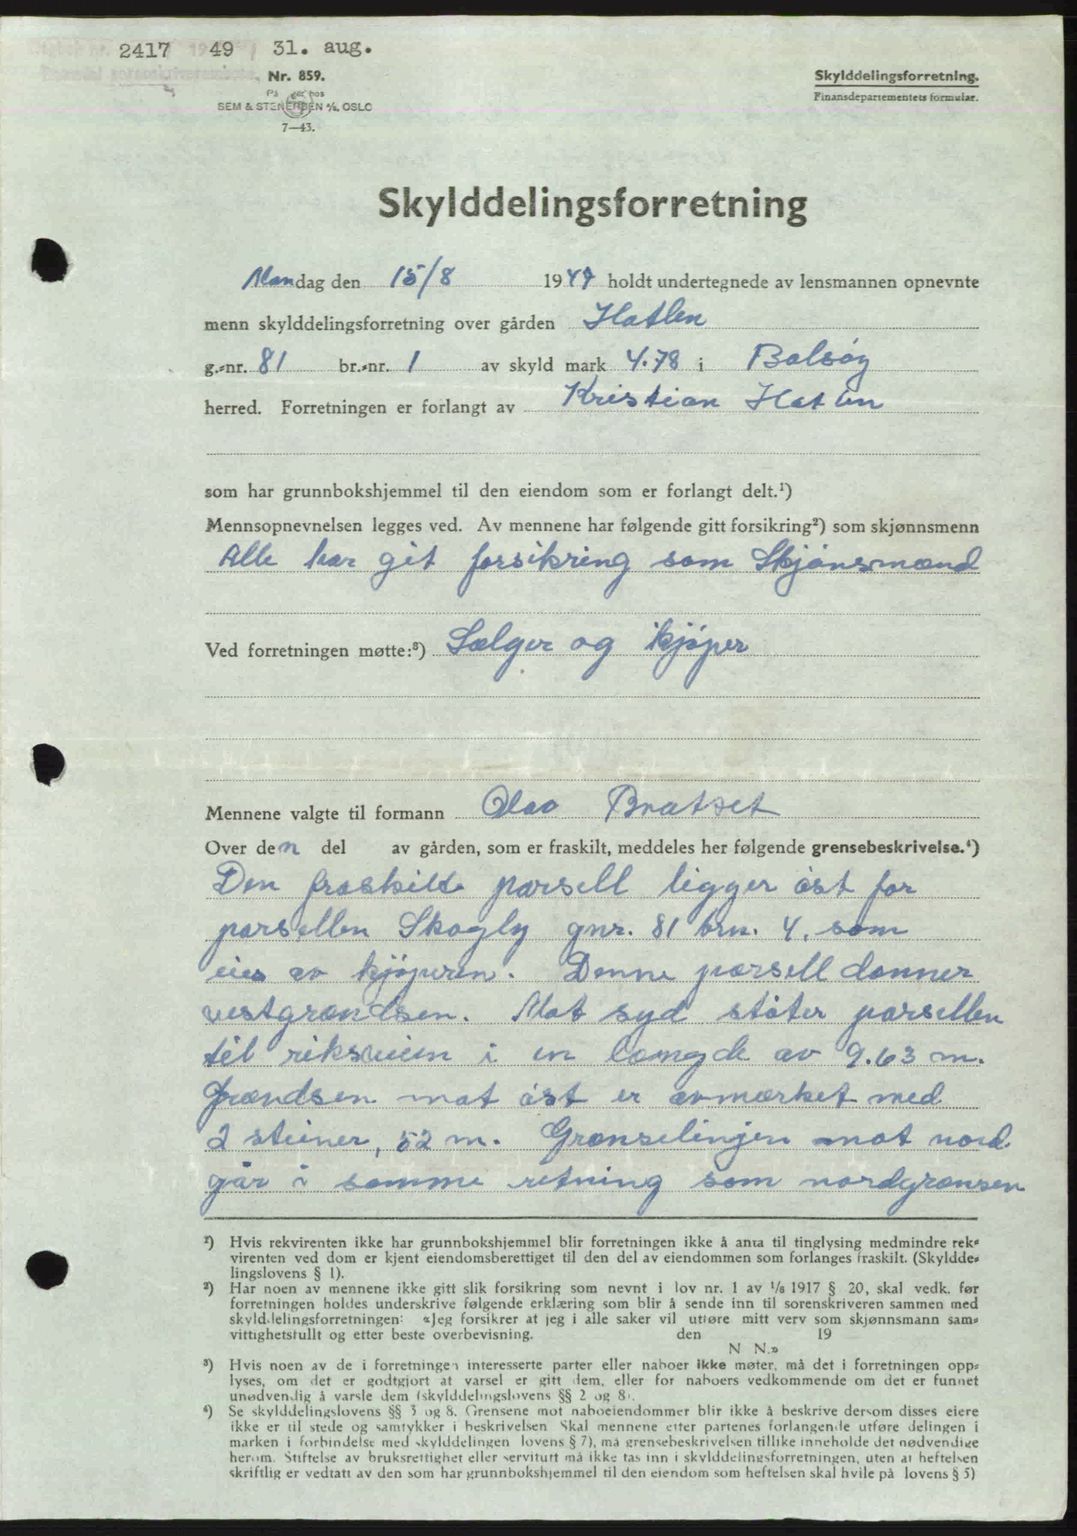 2417 49 31. aug.
Nr. 859.
Skylddelingsforretning.
På lager hos
Finansdepartementets formular.
SEM & STENERSEN A/S. OSLO
7—43.
Skylddelingsforretning
Mandag den 15/8 1949 holdt undertegnede av lensmannen opnevnte
menn skylddelingsforretning over gården Hatlen
g.-nr. 81 br.-nr. 1 av skyld mark 4.78 i Bolsøy
herred. Forretningen er forlangt av Kristian Hatlen
som har grunnbokshjemmel til den eiendom som er forlangt delt.¹)
Mennsopnevnelsen legges ved. Av mennene har følgende gitt forsikring²) som skjønnsmenn
Alle har git forsikring som Skjønsmænd
Ved forretningen møtte:³) Sælger og kjøper
Mennene valgte til formann Olav Bratset
Over den del av gården, som er fraskilt, meddeles her følgende grensebeskrivelse.⁴)
Den fraskilte parsell ligger øst for
parsellen Skogly gnr. 81 brn. 4. som
eies av kjøperen. Denne parsell danner
vestgrændsen. Mot syd støter parsellen
til riksveien i en længde av 9.63 m.
Grændsen mot øst er avmærket med
2 steiner, 52 m. Grænselinjen mot nord
går i samme retning som nordgrænsen
¹) Hvis rekvirenten ikke har grunnbokshjemmel blir forretningen ikke å anta til tinglysing medmindre rek-
virenten ved dom er kjent eiendomsberettiget til den del av eiendommen som forlanges fraskilt. (Skyldde-
lingslovens § 1).
²) Har noen av mennene ikke gitt slik forsikring som nevnt i lov nr. 1 av 1/6 1917 § 20, skal vedk. før
forretningen holdes underskrive følgende erklæring som blir å sende inn til sorenskriveren sammen med
skylddelingsforretningen: «Jeg forsikrer at jeg i alle saker vil utføre mitt verv som skjønnsmann sam-
vittighetsfullt og etter beste overbevisning. den 19
N N.»
³) Hvis noen av de i forretningen interesserte parter eller naboer ikke møter, må det i forretningen opp-
lyses, om det er godtgjort at varsel er gitt dem, eller for naboers vedkommende om det er funnet
unødvendig å varsle dem (skylddelingslovens §§ 2 og 8).
⁴) Se skylddelingslovens §§ 3 og 8. Grensene mot naboeiendommer blir ikke å beskrive dersom disses eiere
ikke er til stede og samtykker i beskrivelsen Skal mennene etter partenes forlangende utføre delingen i
marken i forbindelse med skylddelingen lovens § 7), må grensebeskrivelsen tillike inneholde det nødvendige
herom. Stiftelse av bruksrettighet eller servitutt må ikke tas inn i skylddelingsforretningen, uten at heftelsen
skriftlig er vedtatt av den som har grunnbokshjemmel til den eiendom som heftelsen skal hvile på lovens § 5)